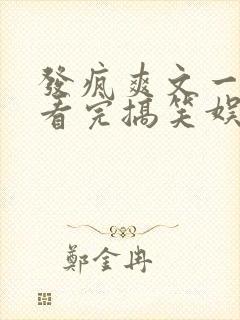 發瘋爽文一
看完搞笑娛
鄭金冉